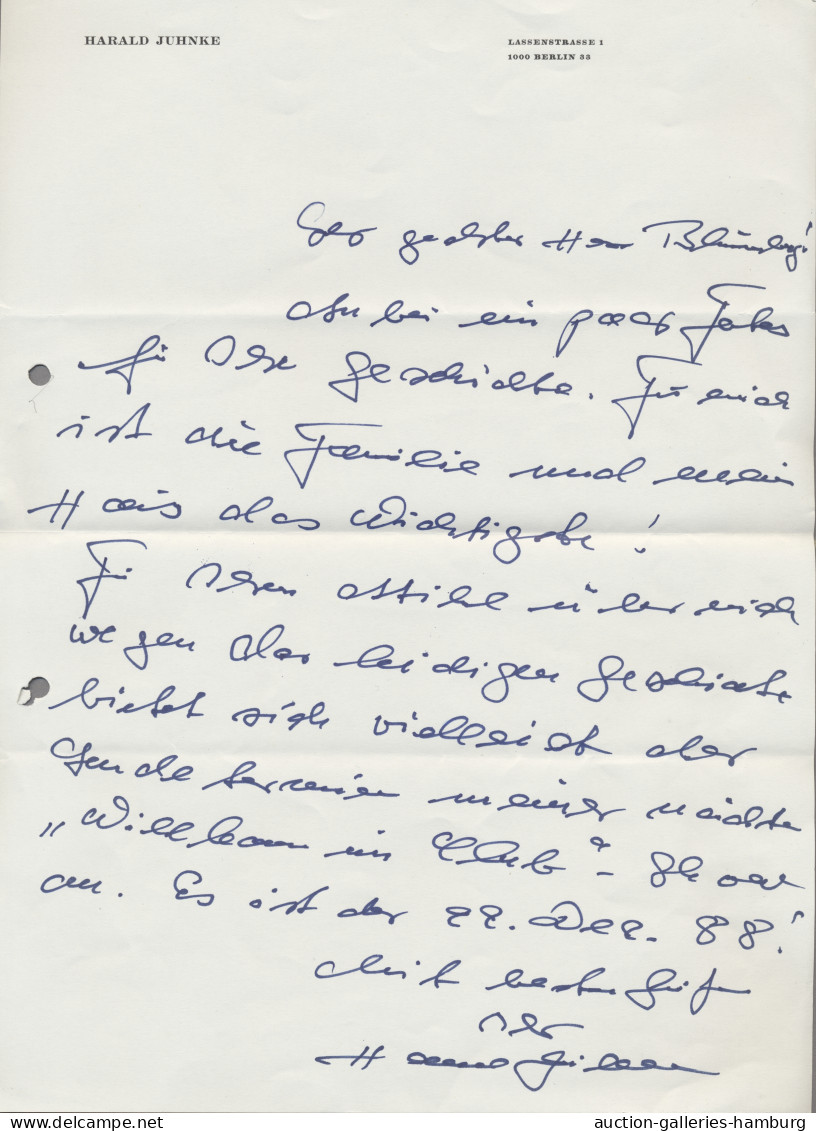 HARALD JUHNKE
LASSENSTRASSE 1
1000 BERLIN 33
Sehr geehrter Herr
anbei ein paar Fotos
für Ihre Geschichte. Für mich
ist die Familie und mein
Haus das Wichtigste!
Für Ihren Artikel über mich
wegen der leidigen Geschichte
bietet sich vielleicht der
Sendetermin meiner nächsten
„Willkommen im Club“- Show
an. Es ist der 22. Dez. 88!
Mit besten Grüßen
Ihr
Harald Juhnke
auction-galleries-hamburg